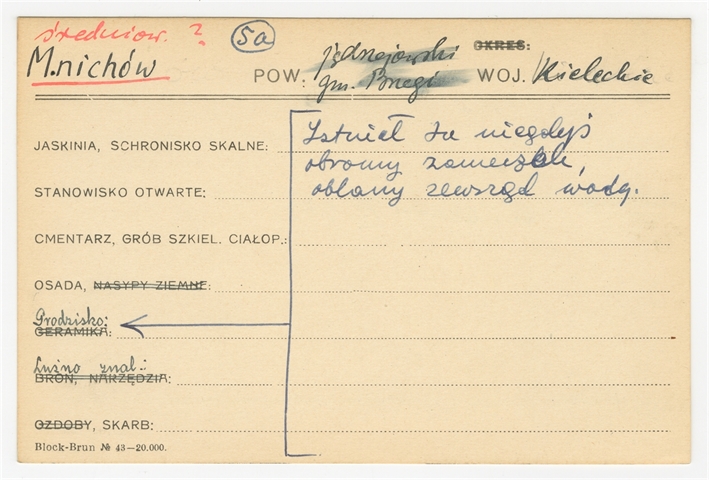 średniow. ?
5a
M.nichów
OKRES:
POW. jędrzejowski WOJ. Kieleckie
gm. Brzegi
JASKINIA, SCHRONISKO SKALNE: Istniał tu niegdyś
obronny zameczek,
STANOWISKO OTWARTE: oblany zewsząd wodą.
CMENTARZ, GRÓB SZKIEL. CIAŁOP.:
OSADA, NASYPY ZIEMNE:
Grodzisko:
CERAMIKA:
Luźno znal.:
BROŃ, NARZĘDZIA:
OZDOBY, SKARB:
Block-Brun № 43—20.000.